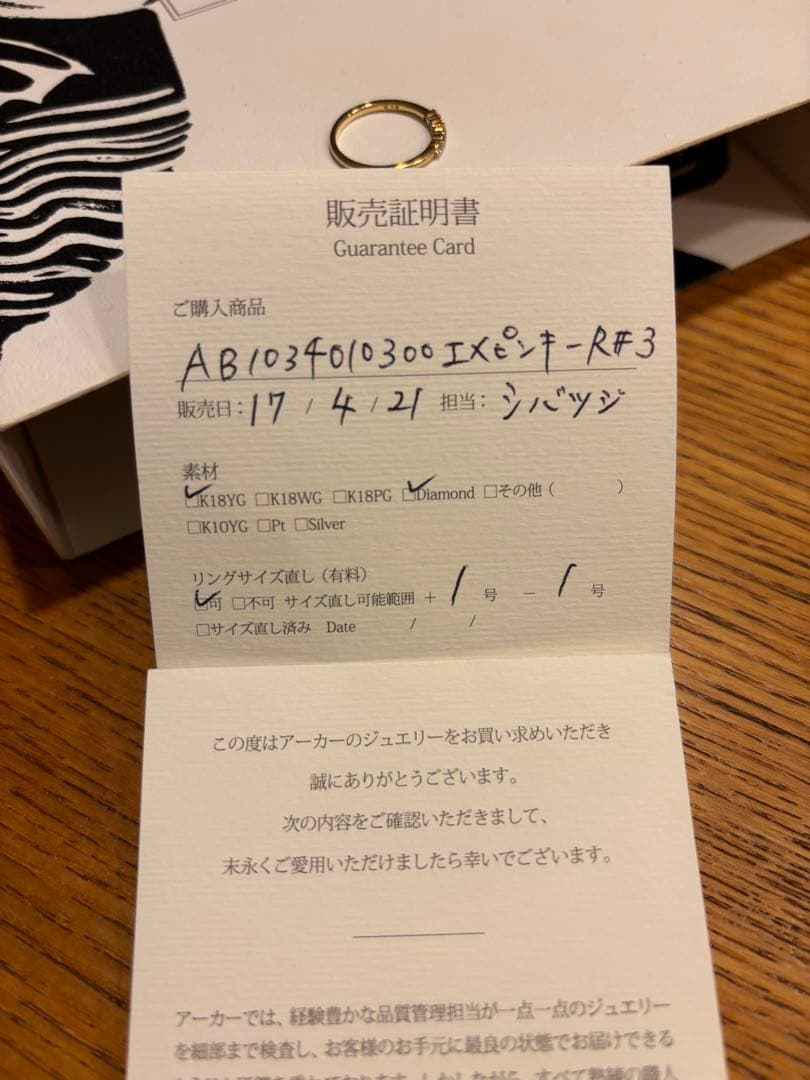 販売証明書
Guarantee Card
ご購入商品
AB1034010300エメピンキーR#3
販売日：17 / 4 / 21 担当：シバツジ
素材
☑K18YG □K18WG □K18PG ☑Diamond □その他（ ）
□K10YG □Pt □Silver
リングサイズ直し（有料）
☑可 □不可 サイズ直し可能範囲 ＋ 1 号 － 1 号
□サイズ直し済み Date / /
この度はアーカーのジュエリーをお買い求めいただき
誠にありがとうございます。
次の内容をご確認いただきまして、
末永くご愛用いただけましたら幸いでございます。
アーカーでは、経験豊かな品質管理担当が一点一点のジュエリー
を細部まで検査し、お客様のお手元に最良の状態でお届けできる